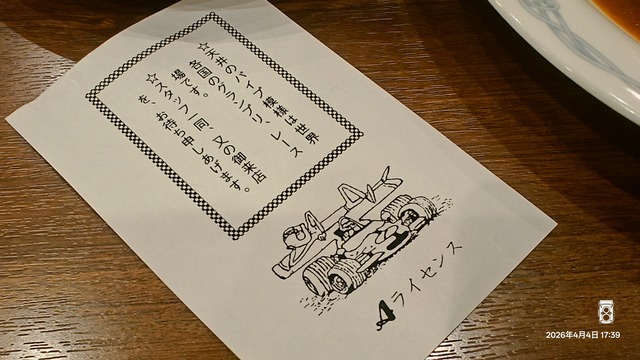 ☆天井のパイプ模様は世界
各国のグランプリ、レース
場です。
☆スタッフ一同、又の御来店
を、お待ち申しあげます。
Aライセンス
2026年4月4日 17:39